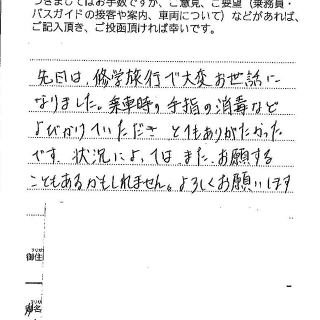 つきましてはお手数ですが、ご意見、ご要望（乗務員・
バスガイドの接客や案内、車両について）などがあれば、
ご記入頂き、ご投函頂ければ幸いです。
先日は、修学旅行で大変お世話に
なりました。乗車時の手指の消毒など
よびかけていただき とてもありがたかった
です。状況によっては、また、お願する
こともあるかもしれません。よろしくお願いします
御住
御名